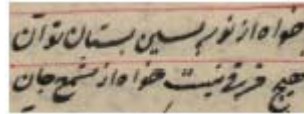 خواه از نور پسین بستان تو آن
هیچ فرقی نیست خواه از شمع جان